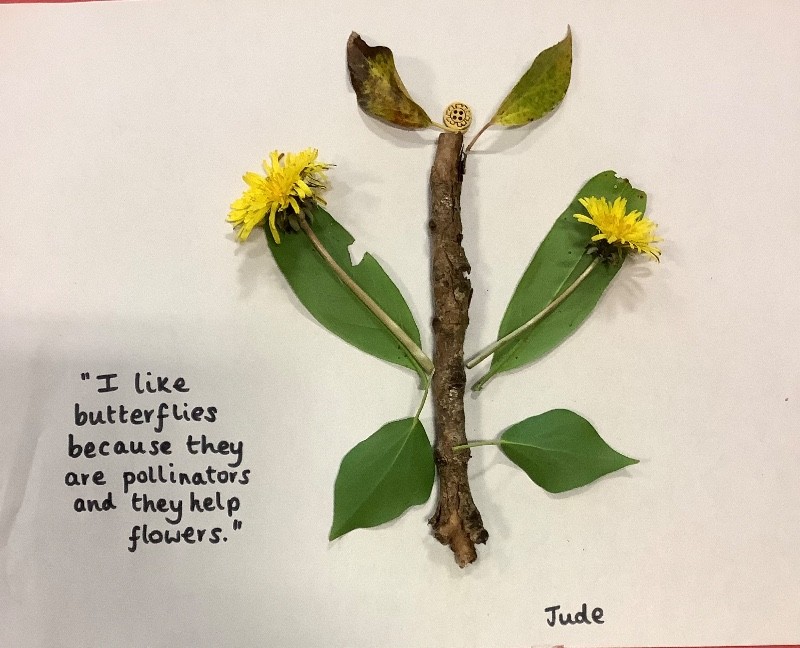 "I like
butterflies
because they
are pollinators
and they help
flowers."
Jude